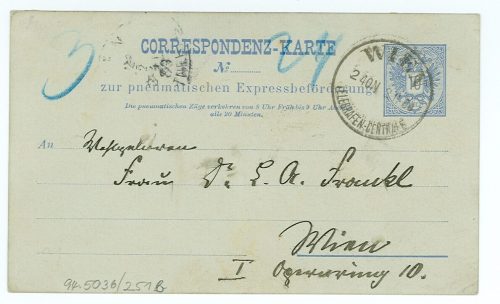 3
24
CORRESPONDENZ-KARTE
№
zur pneumatischen Expressbeförderung
Die pneumatischen Züge verkehren von 8 Uhr Früh bis 9 Uhr Abends
alle 20 Minuten.
WIEN
2 40N
TELEGRAFEN-CENTRALE
An
Wohlgeboren
Frau Dr L. A. Frankl
Wien
I Opernring 10.
94.5036/251B